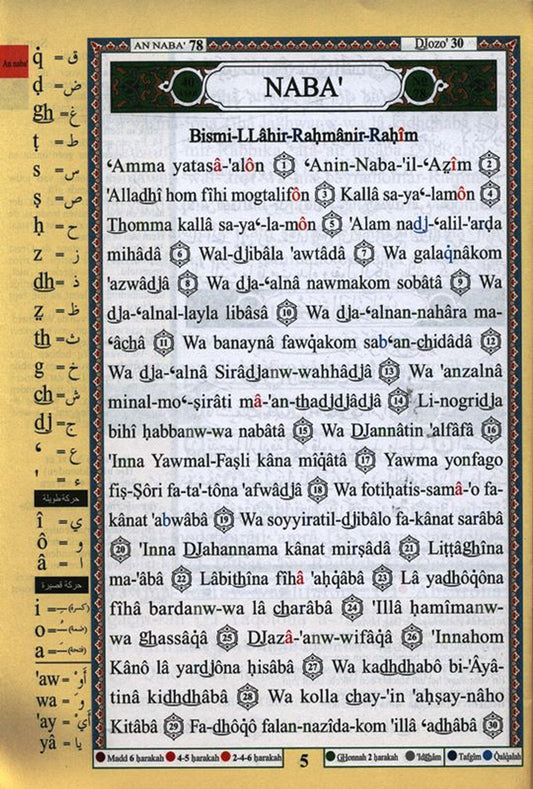 AN NABA' 78
DJozo' 30
An naba'
NABA'
Bismi-LLâhir-Raḥmânir-Raḥîm
‘Amma yatasâ-'alôn 1 ‘Anin-Naba-'il-‘Aẓîm 2
'Alladhî hom fîhi mogtalifôn 3 Kallâ sa-ya‘-lamôn 4
Thomma kallâ sa-ya‘-la-môn 5 'Alam nadj-‘alil-'arḍa
mihâdâ 6 Wal-djibâla 'awtâdâ 7 Wa galaq̇nâkom
'azwâdjâ 8 Wa dja-‘alnâ nawmakom sobâtâ 9 Wa
dja-‘alnal-layla libâsâ 10 Wa dja-‘alnan-nahâra ma-
‘âchâ 11 Wa banaynâ fawq̇akom sab‘an-chidâdâ 12
Wa dja-‘alnâ Sirâdjanw-wahhâdjâ 13 Wa 'anzalnâ
minal-mo‘-ṣirâti mâ-'an-thadjdjâdjâ 14 Li-nogridja
bihî ḥabbanw-wa nabâtâ 15 Wa DJannâtin 'alfâfâ 16
'Inna Yawmal-Faṣli kâna mîq̇âtâ 17 Yawma yonfago
fiṣ-Ṣôri fa-ta'-tôna 'afwâdjâ 18 Wa fotiḥatis-samâ-'o fa-
kânat 'abwâbâ 19 Wa soyyiratil-djibâlo fa-kânat sarâbâ
20 'Inna DJahannama kânat mirṣâdâ 21 Liṭṭâghîna
ma-'âbâ 22 Lâbithîna fîhâ 'aḥq̇âbâ 23 Lâ yadhôq̇ôna
fîhâ bardanw-wa lâ charâbâ 24 'Illâ ḥamîmanw-
wa ghassâq̇â 25 DJazâ-'anw-wifâq̇â 26 'Innahom
Kânô lâ yardjôna ḥisâbâ 27 Wa kadhdhabô bi-'Âyâ-
tinâ kidhdhâbâ 28 Wa kolla chay-'in 'aḥṣay-nâho
Kitâbâ 29 Fa-dhôq̇ô falan-nazîda-kom 'illâ ‘adhâbâ 30
q̇ = ق
ḍ = ض
gh = غ
ṭ = ط
s = س
ṣ = ص
ḥ = ح
z = ز
dh = ذ
ẓ = ظ
th = ث
g = خ
ch = ش
dj = ج
‘ = ع
' = ء
حركة طويلة
î = ي
ô = و
â = ا
حركة قصيرة
i = ـِ (كسرة)
o = ـُ (ضمة)
a = ـَ (فتحة)
'aw = أَوْ
wa = وَ
'ay = أَيْ
yâ = يا
Madd 6 ḥarakah 4-5 ḥarakah 2-4-6 ḥarakah
5
GHonnah 2 ḥarakah 'Idghâm Tafgîm Q̇alq̇alah